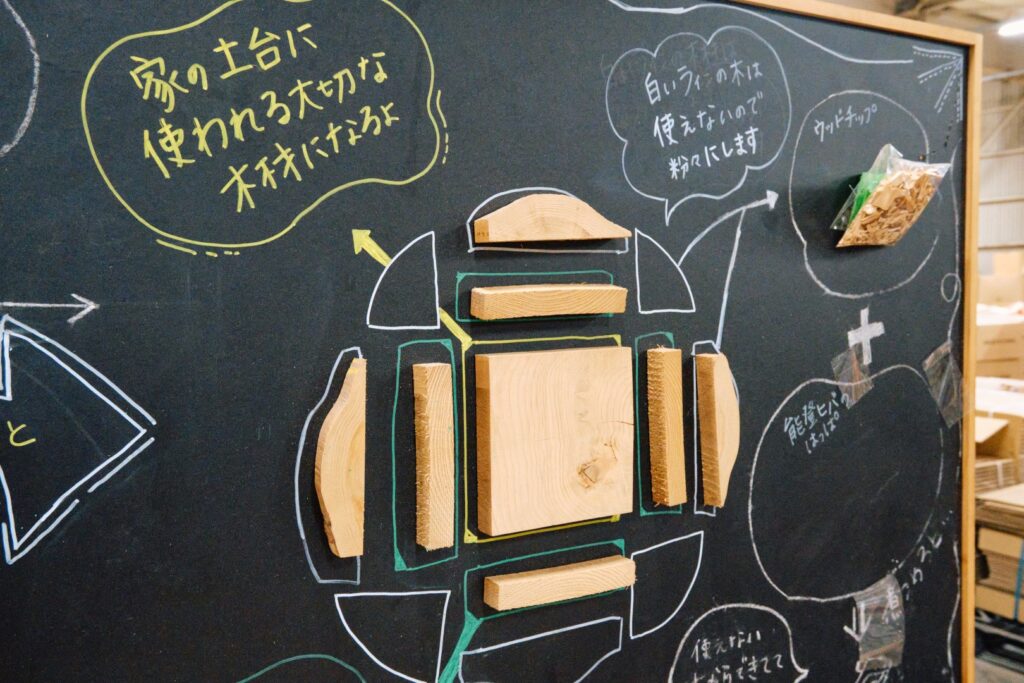 家の土台に
使われる大切な
木材になるよ
白いラインの木は
使えないので
粉々にします
ウッドチップ
+
能登ヒバの
はっぱ
と
使えない
からできてて